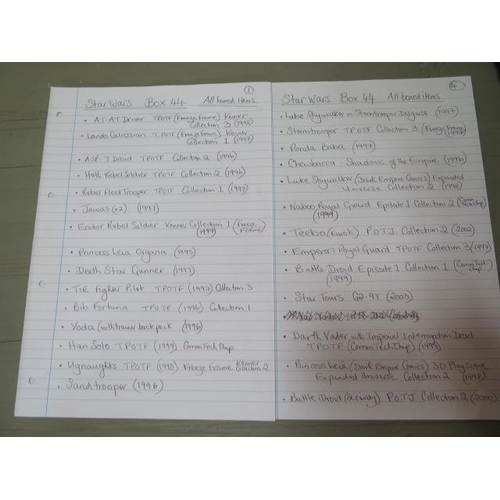 1
Star Wars Box 44 All boxed items
• AT-AT Driver TPOTF (Freeze Frame) Kenner
Collection 3 (1998)
• Lando Calrissian TPOTF (Freeze Frame) Kenner
Collection 1 (1997)
• ASP 7 Droid TPOTF Collection 2 (1996)
• Hoth Rebel Soldier TPOTF Collection 2 (1996)
• Rebel Fleet Trooper TPOTF Collection 1 (1997)
• Jawas (x2) (1997)
• Endor Rebel Soldier Kenner Collection 1 (Freeze
(1997) Frame)
• Princess Leia Organa (1995)
• Death Star Gunner (1997)
• TIE Fighter Pilot TPOTF (1997) Collection 3
• Bib Fortuna TPOTF (1996) Collection 1
• Yoda (with trainer backpack (1996)
• Han Solo TPOTF (1999) CommTech Chip
• Ugnaughts TPOTF (1998) Freeze Frame Kenner
Collection 2
• Sandtrooper (1996)
4
Star Wars Box 44 All boxed items
• Luke Skywalker in Stormtrooper Disguise (1997)
• Stormtrooper TPOTF Collection 3 (Freeze Frame)
• Ponda Baba (1997)
• Chewbacca Shadows of the Empire (1996)
• Luke Skywalker (Dark Empire Comics) Expanded
Universe Collection 2 (1998)
• Naboo Royal Guard Episode 1 Collection 2
(1999)
• Teebo (Ewok) POTJ Collection 2 (2002)
• Emperors Royal Guard TPOTF Collection 3 (1997)
• Battle Droid Episode 1 Collection 1 (CommTech Chip)
(1999)
• Star Tours G2-9T (2003)
• Darth Vader with Imperial Interrogation Droid
TPOTF (CommTech Chip) (1999)
• Princess Leia (Dark Empire Comics) 3D Playscene
Expanded Universe Collection 2 (1998)
• Battle Droid (Security) POTJ Collection 2 (2000)